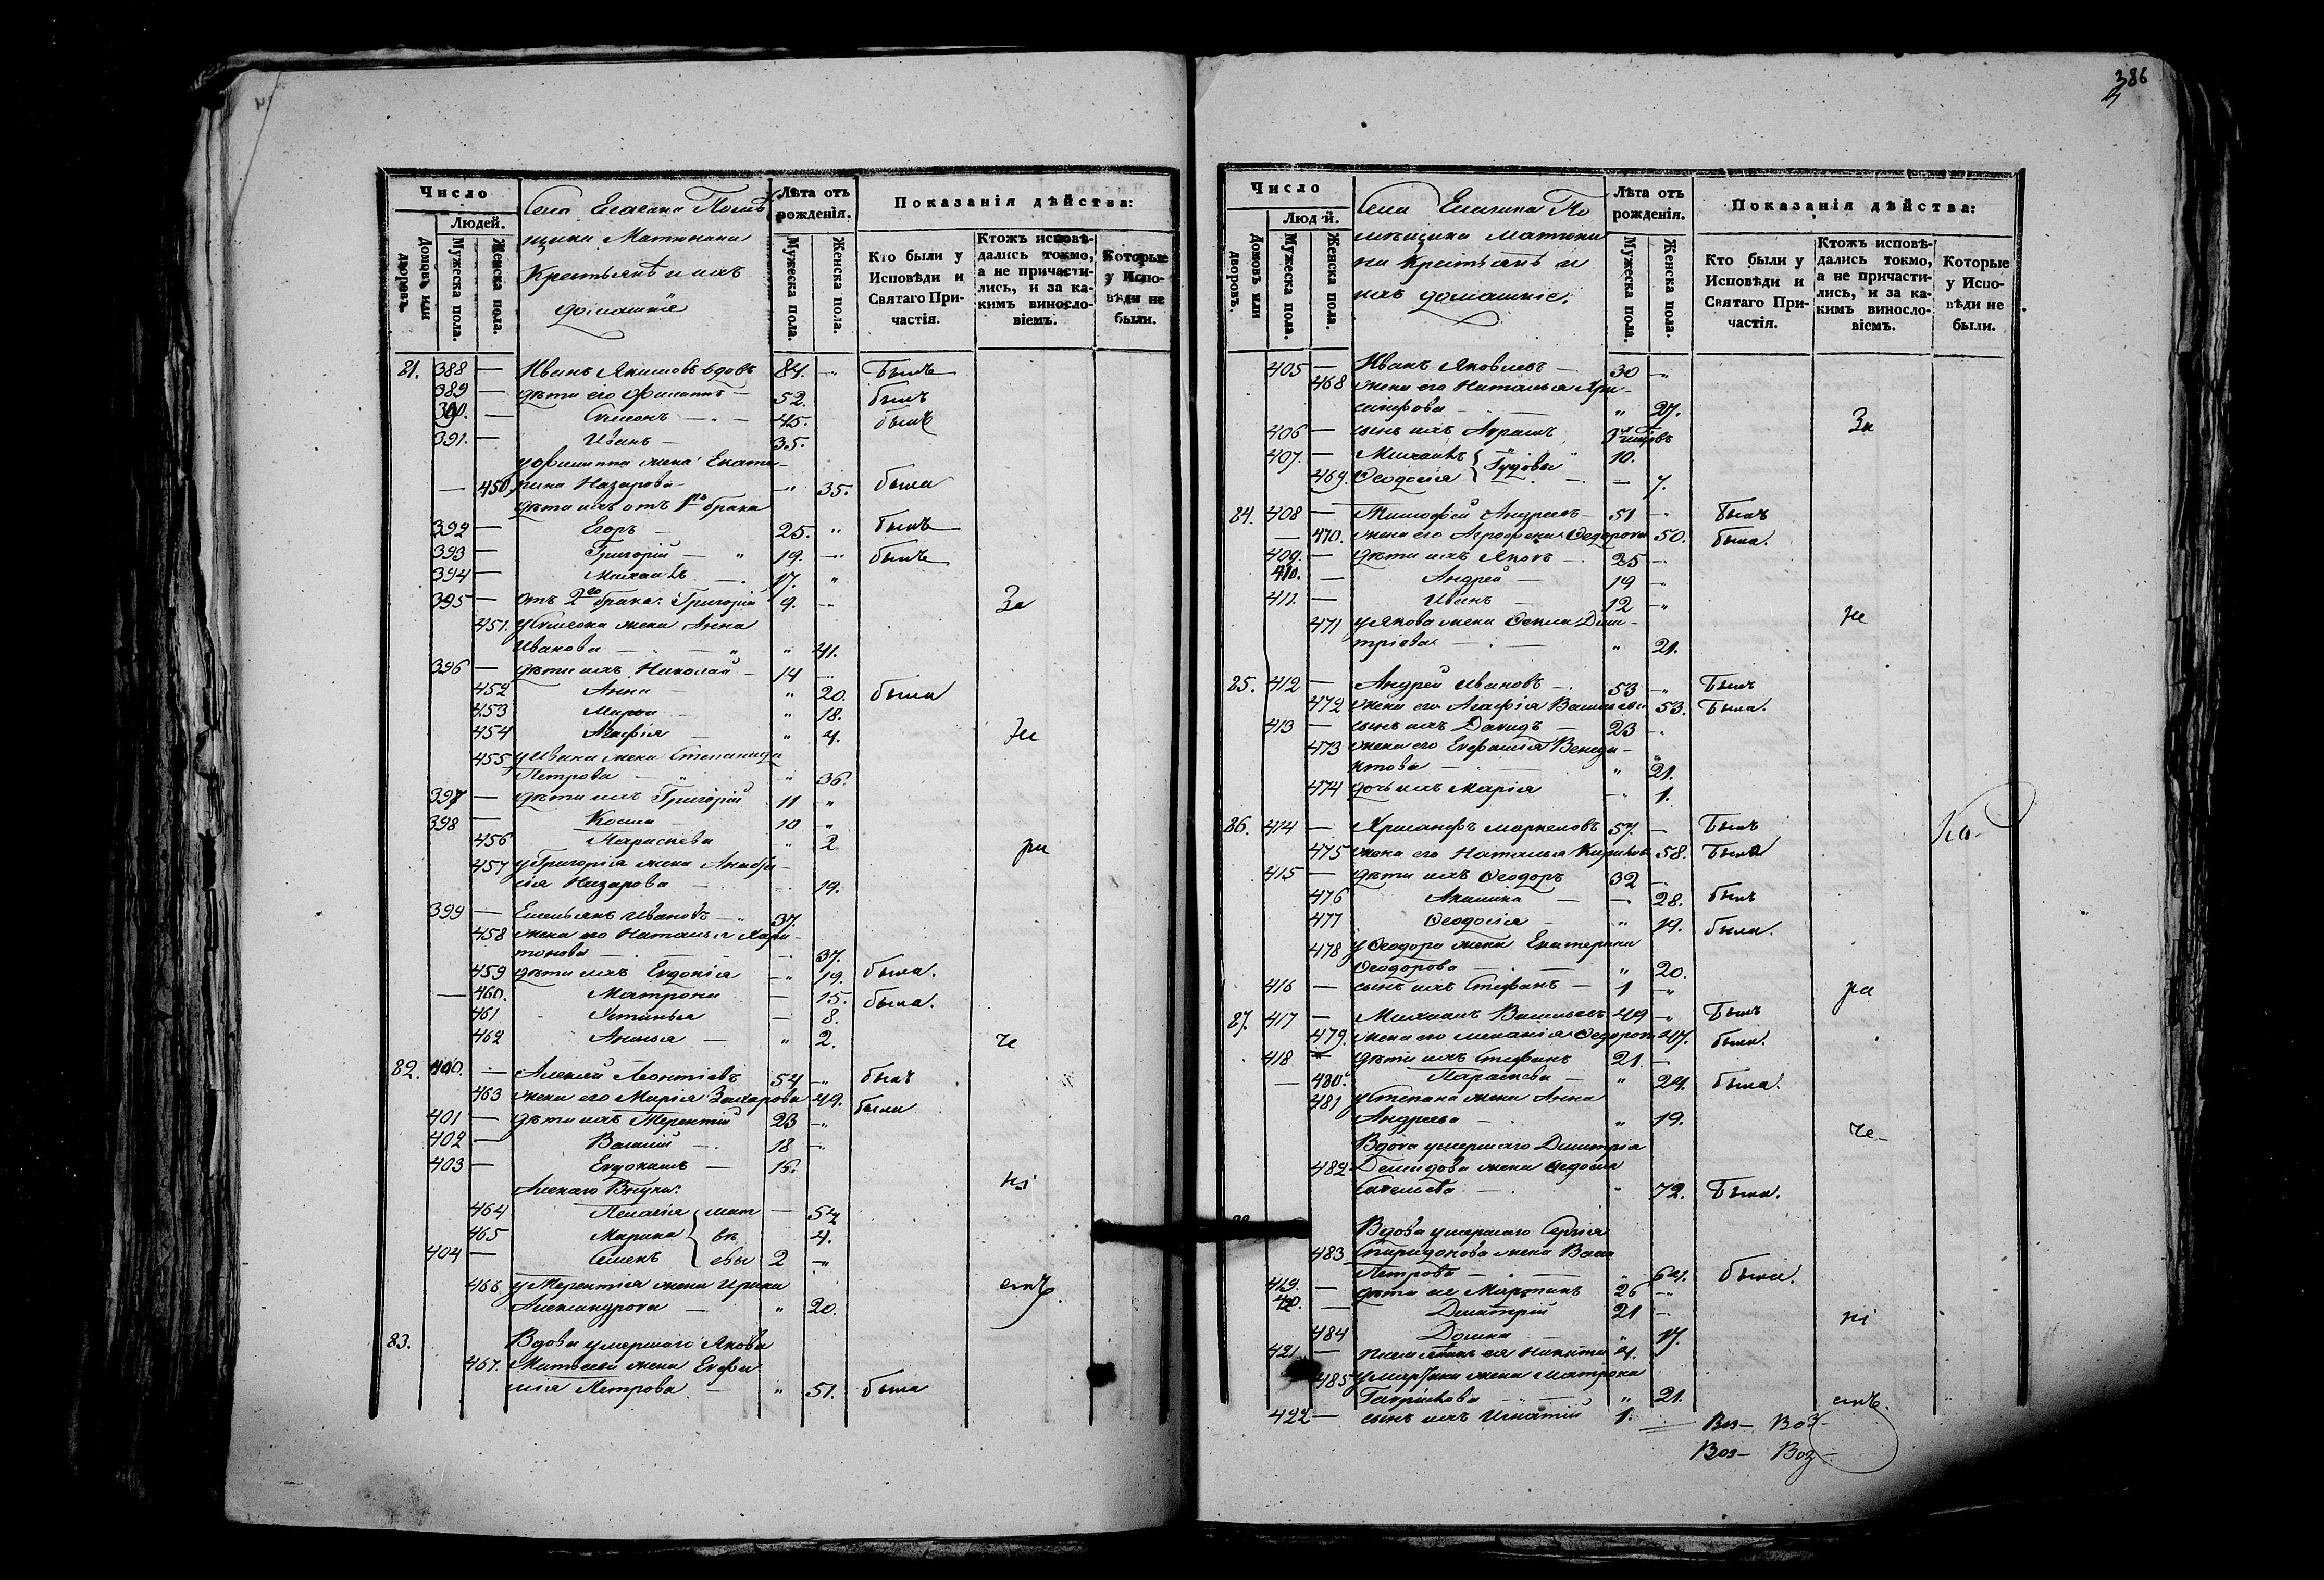 386
Число
Людей.
Домовъ или дворовъ.
Мужеска пола.
Женска пола.
Села Елагина Помѣ
щика Матюнина
Крестьянѣ и ихъ
домашніе
Лѣта отъ рожденія.
Мужеска пола.
Женска пола.
Показанія дѣйства:
Кто были у Исповѣди и Святаго Причастія.
Ктожъ исповѣдались токмо, а не причастились, и за какимъ винословіемъ.
Которые у Исповѣди не были.
81. 388 — Иванъ Якимовъ вдовъ 84. Былъ
389 — дѣти его Филиппъ — 52. былъ
390. — Симеонъ — 45. былъ
391. — Иванъ — 35.
у Филиппа жена Екате-
— 450 рина Назарова — " 35. была
дѣти ихъ отъ 1го брака
392 — Егоръ — 25. " былъ
393 — Григорій — " 19. былъ
394 — Михаилъ — 17. "
395 — отъ 2го брака: Григорій 9. За
451. у Симеона жена Анна
Иванова — " 41.
396 — дѣти ихъ Николай — 14
452 Анна — " 20. была
453 Марѳа " 18.
454 Агафія — " 4. не
455 у Ивана жена Степанида
Петрова — " 36.
397 — дѣти ихъ Григорій 11 "
398 — Косма — 10 "
456 Параскева " 2 ра
457 у Григорія жена Анаста-
сія Назарова — 19.
399 — Емельянъ Ивановъ — 37.
458 жена его Наталья Хари-
тонова — 37.
459 дѣти ихъ Евдокія " 19. была.
— 460. Матрона — 15. была.
461 Устинья — 8.
462 Аксинья — " 2. че
82. 400. — Алексѣй Леонтіевъ 54 былъ
463 жена его Марія Захарова 49. была
401 — дѣти ихъ Терентій 23
402 — Василій — 18
403 — Евдокимъ — 15. ні
Алексѣя Внуки:
464 Пелагія
465 Марина 4.
404 — Семенъ 2
466 у Терентія жена Ирина емъ
Александрова — " 20.
83. Вдова умершаго Якова
467. Матвѣева жена Евфи
мія Петрова — " 51. была
Число
Людей.
Домовъ или дворовъ.
Мужеска пола.
Женска пола.
Села Елагина По
мѣщика Матюни
на Крестьянѣ и
ихъ домашніе.
Лѣта отъ рожденія.
Мужеска пола.
Женска пола.
Показанія дѣйства:
Кто были у Исповѣди и Святаго Причастія.
Ктожъ исповѣдались токмо, а не причастились, и за какимъ винословіемъ.
Которые у Исповѣди не были.
405 — Иванъ Яковлевъ — 30
468 жена его Наталья Хри-
санфова — " 27.
406 — сынъ ихъ Абрамъ За
407. — Михаилъ 10.
469. Ѳеодосія — 7.
84. 408 — Тимофей Андреевъ 51 Былъ
— 470. жена его Агрофена Ѳедорова 50. была.
409. — дѣти ихъ Яковъ — 25
410. — Андрей — 19
411. — Иванъ — 12 не
471 у Якова жена Ѳекла Дми-
тріева — " 21.
85. 412 — Андрей Ивановъ — 53 Былъ
472 жена его Агафія Васильева 53. Была.
413 — сынъ ихъ Давидъ — 23
473 жена его Евфимія Венеди-
ктова — " 21.
474 дочь ихъ Марія 1.
86. 414 — Хрисанфъ Маркеловъ 57. Былъ
475 жена его Наталья Кирилова 58. Была
415 — дѣти ихъ Ѳеодоръ 32
476 Акилина — 28. былъ
477 Ѳеодосія — " 19. была.
478 у Ѳеодора жена Екатерина
Ѳеодорова — " 20.
416 — сынъ ихъ Стефанъ — 1 ра
87. 417 — Михаилъ Васильевъ 49 Былъ
479. жена его Меланія Ѳедорова 47. была.
418 — дѣти ихъ Стефанъ 21
— 480. Параскева — " 24. была.
481 у Степана жена Анна
Андреева — " 19. че-
Вдова умершаго Димитрія
482 Демидова жена Ѳедосія
Савельева — " 72. Была.
Вдова умершаго Сергія
483 Спиридонова жена Васса
Петрова — " 64. была.
419. — дѣти ея Мартинъ 26
420. — Димитрій 21 ні
484 Домна — " 17.
421 — племянникъ ея Никита 4.
485 у Мартина жена Матрона
Гаврилова — " 21. емъ.
422 — сынъ ихъ Игнатій 1.
Воз- Воз-
Воз- Воз-